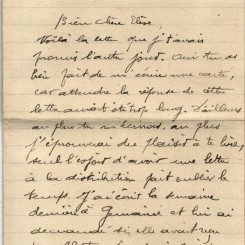 Bien Chère Elise,
Voilà la lettre que j'avais
promis l'autre jour. Oui tu as
bien fait de m'écrire une carte,
car attendre la réponse de cette
lettre aurait été trop long. D'ailleurs
au plus tu m'écriras, au plus
j'éprouverai du plaisir à te lire,
seul l'espoir d'avoir une lettre
à la distribution fait oublier le
temps. J'ai écrit la semaine
dernière à Germaine et lui ai
demandé si elle avait reçu